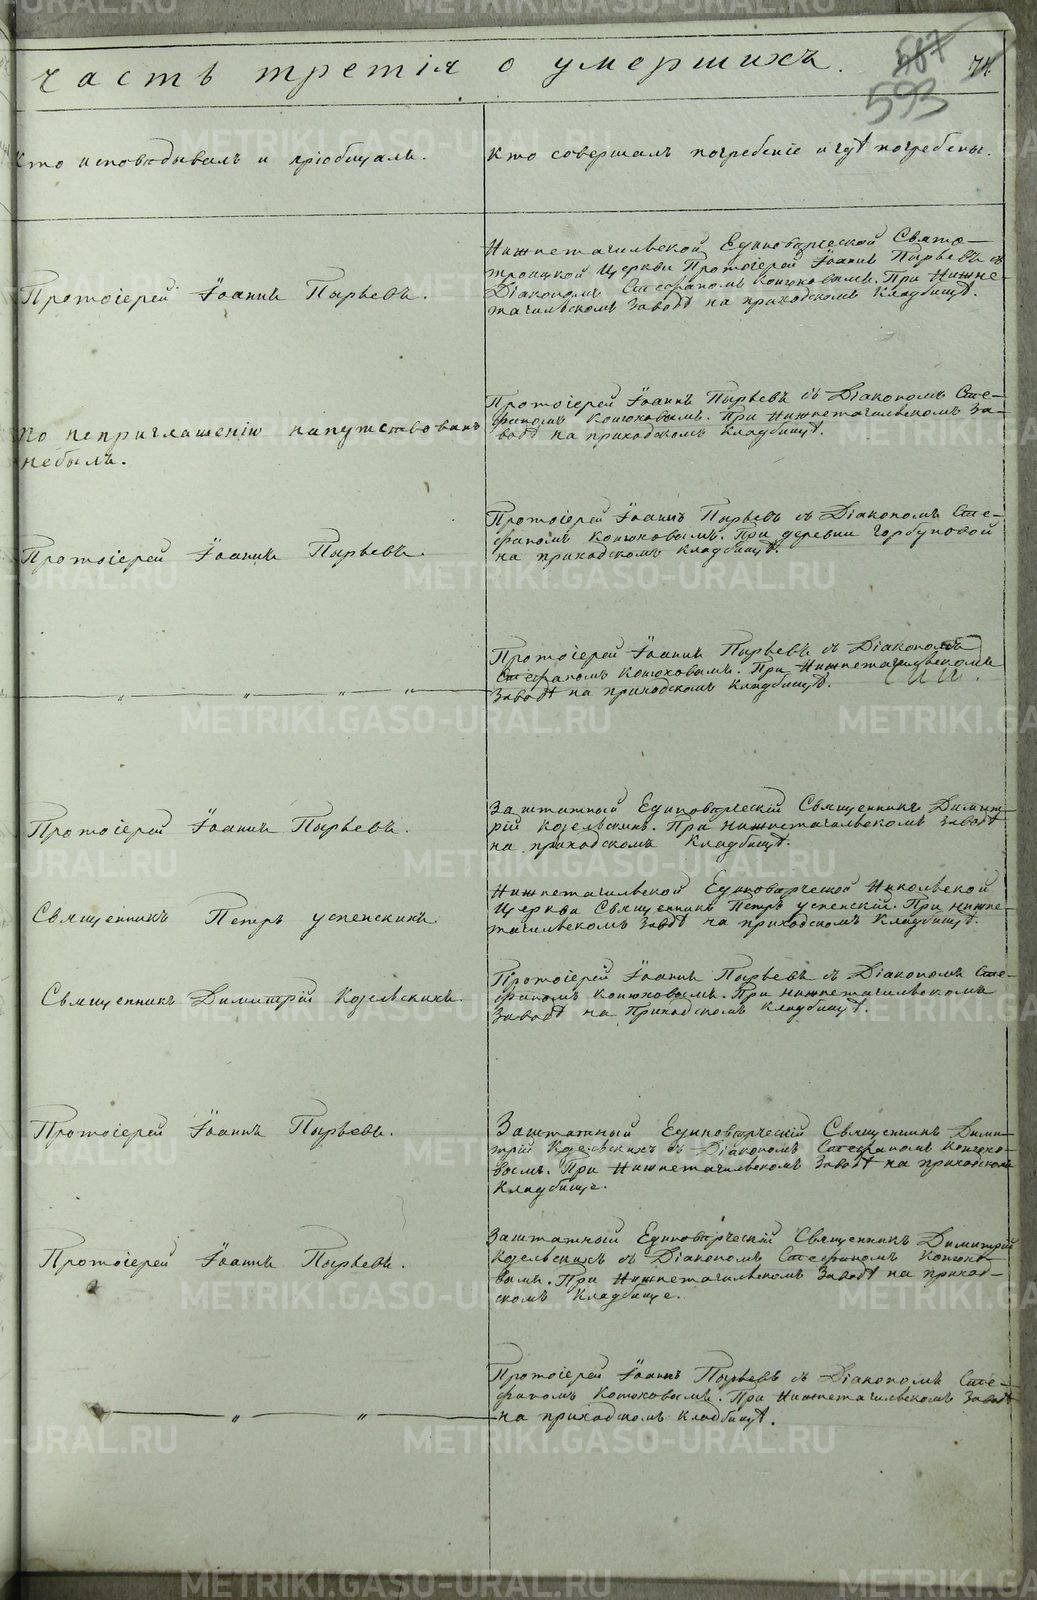 часть третія о умершихъ.
587
74.
593
Кто исповѣдывалъ и пріобщалъ.
Кто совершалъ погребеніе и гдѣ погребены.
Протоіерей Іоаннъ Пырьевъ.
Нижнетагильской Единовѣрческой Свято-
троицкой Церкви Протоіерей Іоаннъ Пырьевъ съ
Діакономъ Стефаномъ Конюховымъ. При Нижне
тагильскомъ Заводѣ на приходскомъ Кладбищѣ.
По неприглашенію напутствованъ
небылъ.
Протоіерей Іоаннъ Пырьевъ съ Діакономъ Сте-
фаномъ Конюховымъ. При Нижнетагильскомъ За-
водѣ на приходскомъ Кладбищѣ.
Протоіерей Іоаннъ Пырьевъ.
Протоіерей Іоаннъ Пырьевъ съ Діакономъ Сте-
фаномъ Конюховымъ. При деревни Горбуновой
на приходскомъ Кладбищѣ.
— „ — „ — „ — „ —
Протоіерей Іоаннъ Пырьевъ съ Діакономъ
Стефаномъ Конюховымъ. При Нижнетагильскомъ
Заводѣ на приходскомъ Кладбищѣ.
Протоіерей Іоаннъ Пырьевъ.
Заштатный Единовѣрческій Священникъ Димит-
рій Козельскихъ. При Нижнетагильскомъ Заводѣ
на приходскомъ Кладбищѣ.
Священникъ Петръ Успенскихъ.
Нижнетагильской Единовѣрческой Николаевской
Церкви Священникъ Петръ Успенскій. При Нижне-
тагильскомъ Заводѣ на приходскомъ Кладбищѣ.
Священникъ Димитрій Козельскихъ.
Протоіерей Іоаннъ Пырьевъ съ Діакономъ Сте-
фаномъ Конюховымъ. При Нижнетагильскомъ
Заводѣ на Приходскомъ Кладбищѣ.
Протоіерей Іоаннъ Пырьевъ.
Заштатный Единовѣрческій Священникъ Дими-
трій Козельскихъ съ Діакономъ Стефаномъ Конюхо-
вымъ. При Нижнетагильскомъ Заводѣ на приходскомъ
Кладбище.
Протоіерей Іоаннъ Пырьевъ.
Заштатный Единовѣрческій Священникъ Димитрій
Козельскихъ съ Діакономъ Стефаномъ Конюхо-
вымъ. При Нижнетагильскомъ Заводѣ на приход-
скомъ Кладбище.
— „ — „ —
Протоіерей Іоаннъ Пырьевъ съ Діакономъ Сте-
фаномъ Конюховымъ. При Нижнетагильскомъ Заводѣ
на приходскомъ Кладбищѣ.
METRIKI.GASO-URAL.RU